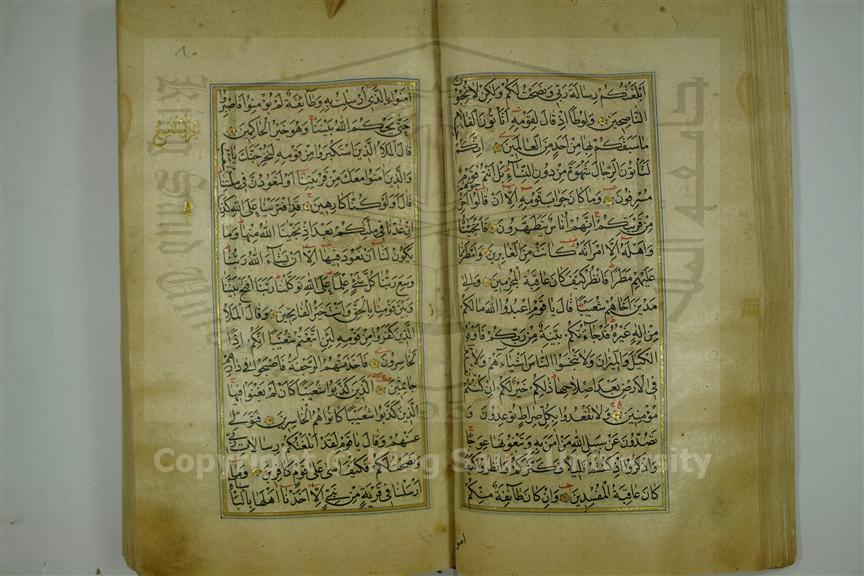 ابلغتكم رسالة ربي ونصحت لكم ولكن لا تحبون
الناصحين ولوطا اذ قال لقومه اتاتون الفاحشة
ما سبقكم بها من احد من العالمين انكم
لتاتون الرجال شهوة من دون النساء بل انتم قوم
مسرفون وما كان جواب قومه الا ان قالوا اخرجوهم
من قريتكم انهم اناس يتطهرون فانجيناه
واهله الا امراته كانت من الغابرين وامطرنا
عليهم مطرا فانظر كيف كان عاقبة المجرمين والى
مدين اخاهم شعيبا قال يا قوم اعبدوا الله ما لكم
من اله غيره قد جاءتكم بينة من ربكم فاوفوا
الكيل والميزان ولا تبخسوا الناس اشياءهم ولا تفسدوا
في الارض بعد اصلاحها ذلكم خير لكم ان كنتم
مؤمنين ولا تقعدوا بكل صراط توعدون و
تصدون عن سبيل الله من امن به وتبغونها عوجا
واذكروا اذ كنتم قليلا فكثركم وانظروا كيف
كان عاقبة المفسدين وان كان طائفة منكم
امنوا
٨٠
امنوا بالذي ارسلت به وطائفة لم يؤمنوا فاصبروا
حتى يحكم الله بيننا وهو خير الحاكمين
قال الملا الذين استكبروا من قومه لنخرجنك يا شعيب
والذين امنوا معك من قريتنا او لتعودن في ملتنا
قال اولو كنا كارهين قد افترينا على الله كذبا
ان عدنا في ملتكم بعد اذ نجينا الله منها وما
يكون لنا ان نعود فيها الا ان يشاء الله ربنا
وسع ربنا كل شيء علما على الله توكلنا ربنا افتح بيننا
وبين قومنا بالحق وانت خير الفاتحين وقال الملا
الذين كفروا من قومه لئن اتبعتم شعيبا انكم اذا
لخاسرون فاخذتهم الرجفة فاصبحوا في دارهم
جاثمين الذين كذبوا شعيبا كان لم يغنوا فيها
الذين كذبوا شعيبا كانوا هم الخاسرين فتولى
عنهم وقال يا قوم لقد ابلغتكم رسالات ربي
ونصحت لكم فكيف اسى على قوم كافرين وما
ارسلنا في قرية من نبي الا اخذنا اهلها بالباساء
Copyright © King Saud University